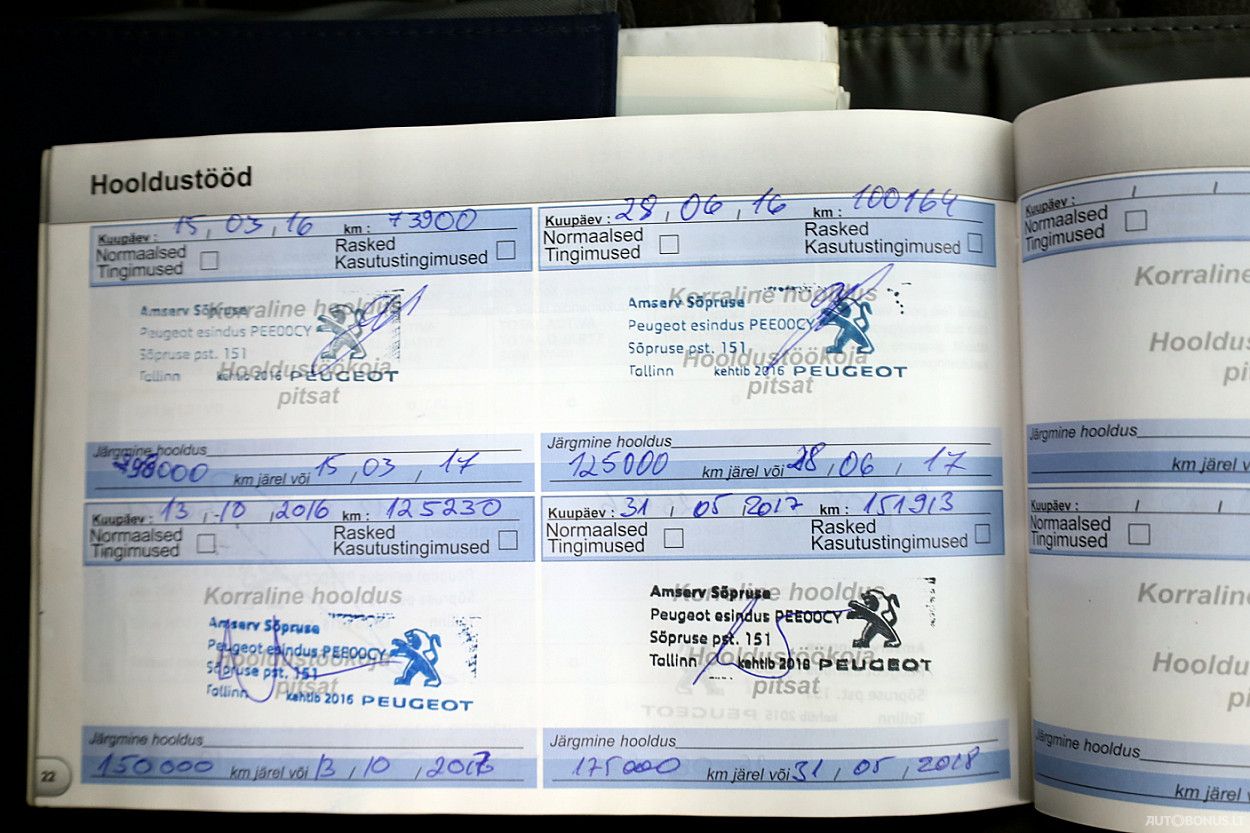 Hooldustööd
Kuupäev : 15 , 03 , 16 km : 73900
Normaalsed Tingimused
Rasked Kasutustingimused
Korraline hooldus
Amserv Sõpruse
Peugeot esindus PEE00CY
Sõpruse pst. 151
Hooldustöökoja
Tallinn kehtib 2016 PEUGEOT
pitsat
Järgmine hooldus
98000 km järel või 15 , 03 , 17
Kuupäev : 28 , 06 , 16 km : 100164
Normaalsed Tingimused
Rasked Kasutustingimused
Korraline hooldus
Amserv Sõpruse
Peugeot esindus PEE00CY
Sõpruse pst. 151
Hooldustöökoja
Tallinn kehtib 2016 PEUGEOT
pitsat
Järgmine hooldus
125000 km järel või 28 , 06 , 17
Kuupäev : 13 , 10 , 2016 km : 125230
Normaalsed Tingimused
Rasked Kasutustingimused
Korraline hooldus
Amserv Sõpruse
Peugeot esindus PEE00CY
Hooldustöökoja
Sõpruse pst. 151
pitsat
Tallinn kehtib 2016 PEUGEOT
Järgmine hooldus
150000 km järel või 13 , 10 , 2017
Kuupäev : 31 , 05 2017 km : 151913
Normaalsed Tingimused
Rasked Kasutustingimused
Korraline hooldus
Amserv Sõpruse
Peugeot esindus PEE00CY
Sõpruse pst. 151
Hooldustöökoja
Tallinn kehtib 2018 PEUGEOT
pitsat
Järgmine hooldus
175000 km järel või 31 , 05 , 2018
22
Kuupäev : / /
Normaalsed Tingimused
Korraline
Hooldu
pi
Järgmine hooldus
km järel v
Kuupäev : / /
Normaalsed Tingimused
Korraline
Hooldu
pi
Järgmine hooldus
km järel v
AUTOBONUS.LT